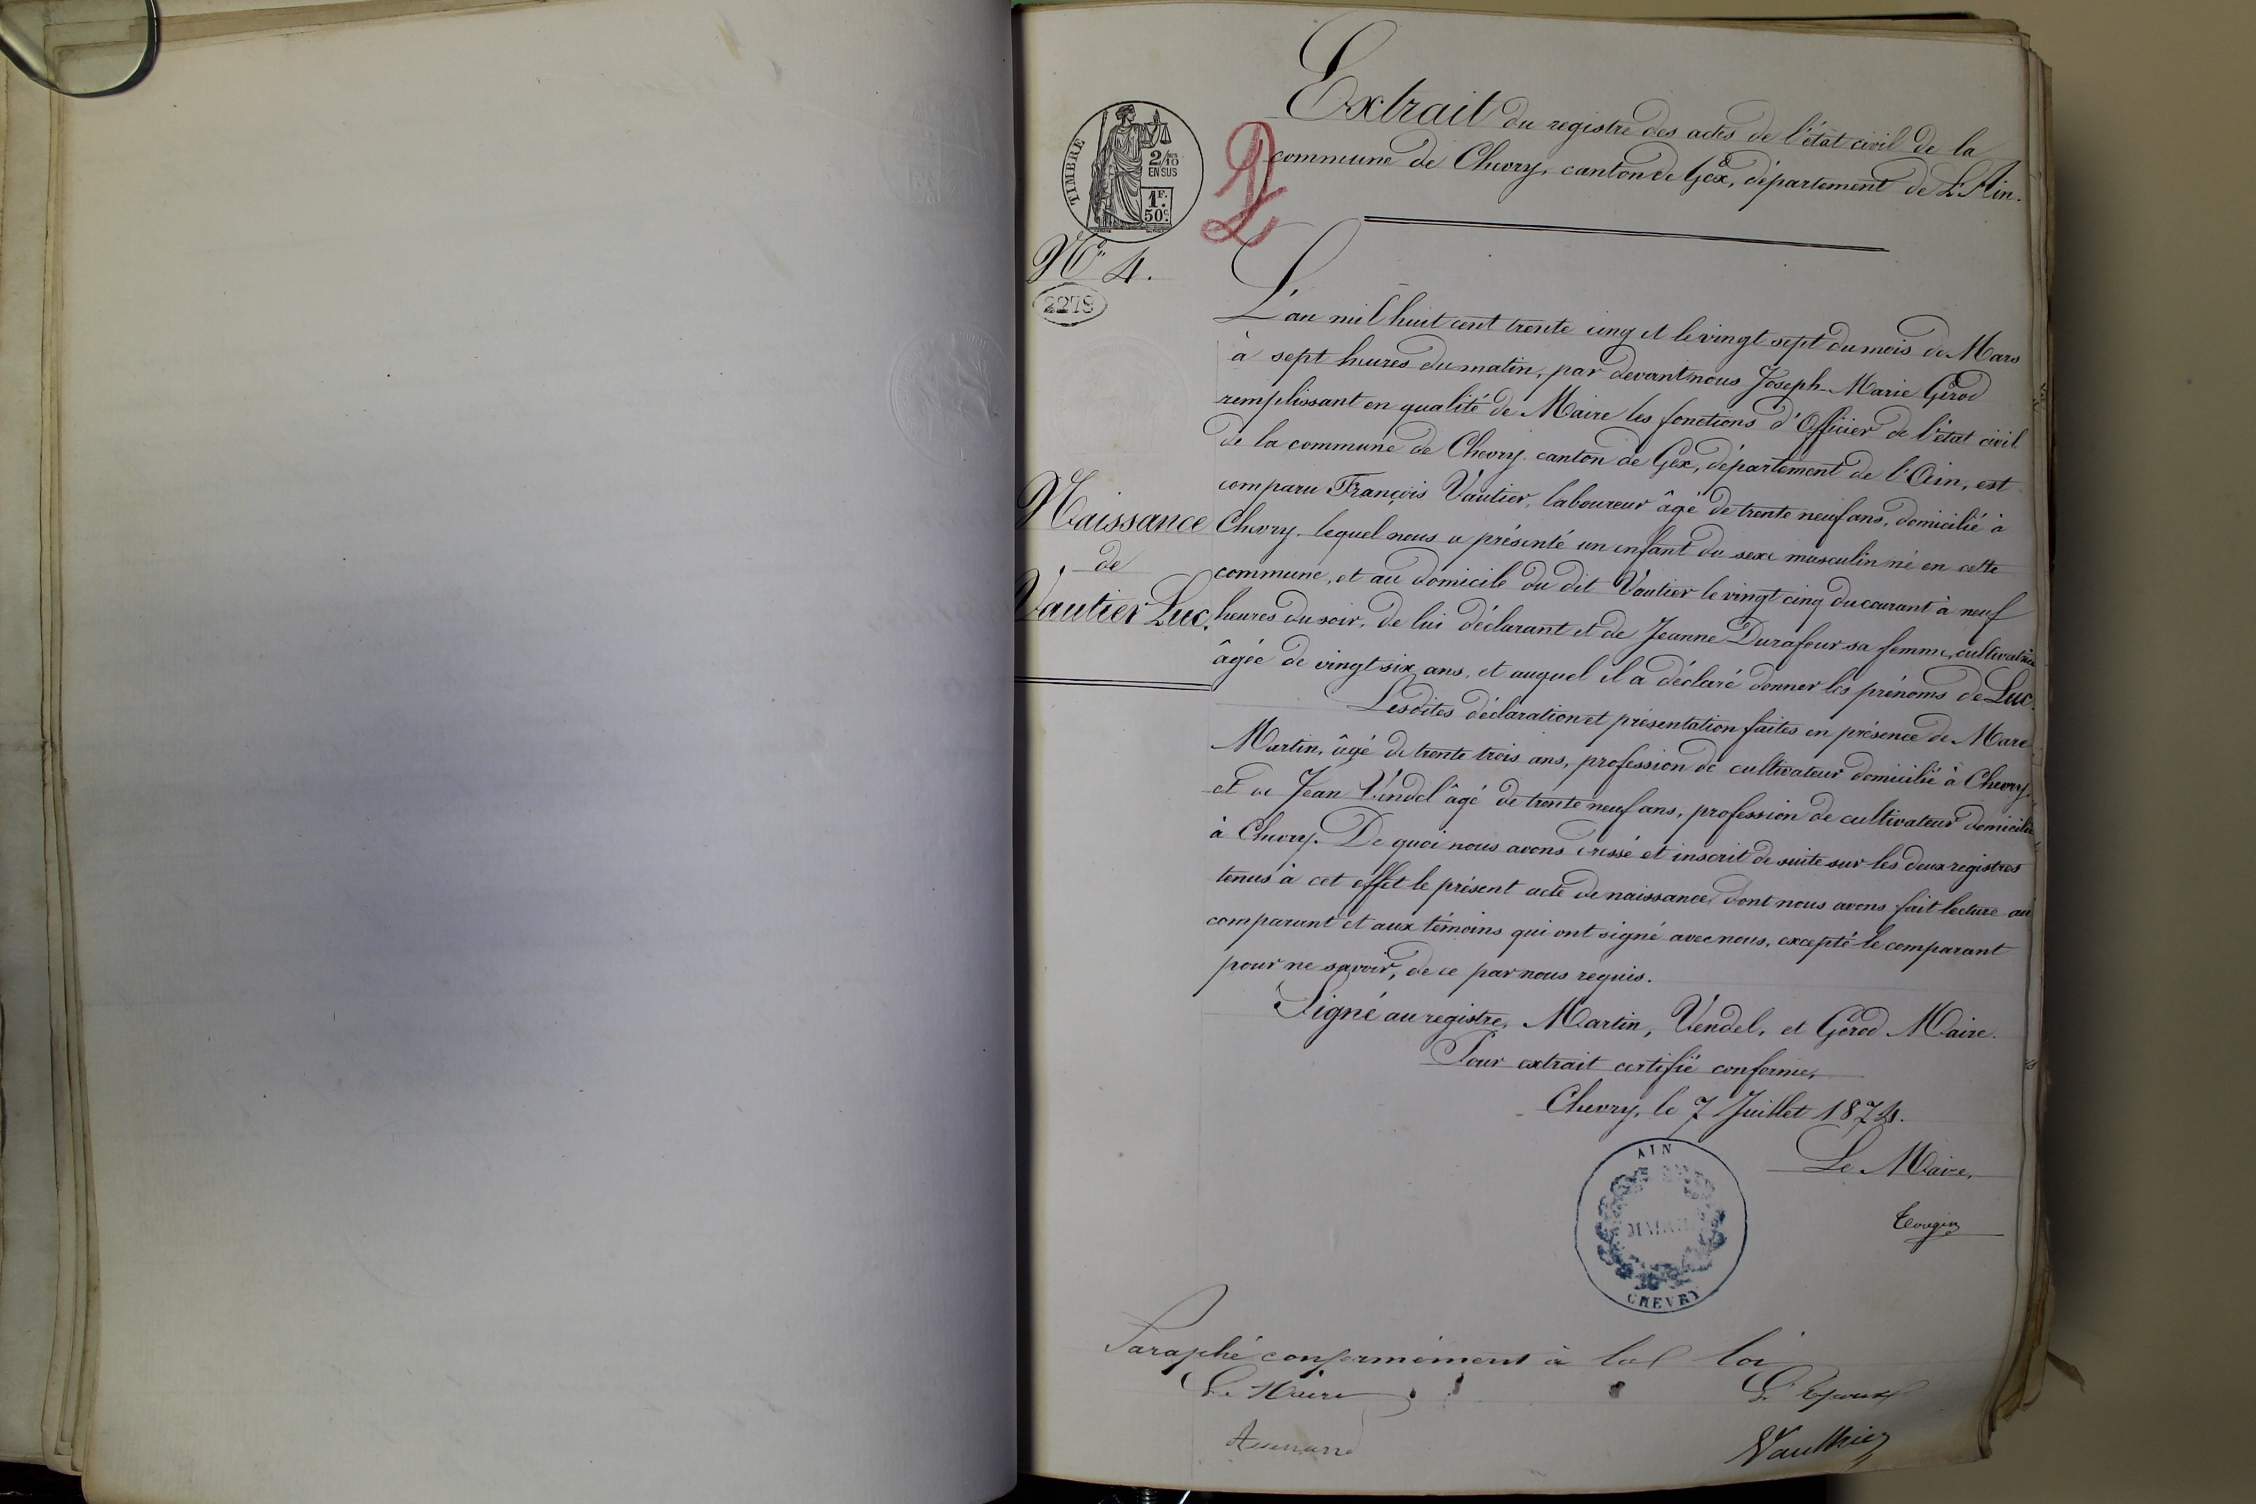 Extrait du registre des actes de l'état civil de la
commune de Chevry, canton de Gex, département de L'Ain.
TIMBRE
2/10
EN SUS
1F.
50c.
2
No 4.
2278
L'an mil huit cent trente cinq et le vingt sept du mois de Mars
à sept heures du matin, par devant nous Joseph-Marie Girod
remplissant en qualité de Maire les fonctions d'Officier de l'état civil
de la commune de Chevry, canton de Gex, département de l'Ain, est
comparu François Vautier, laboureur âgé de trente neuf ans, domicilié à
Chevry, lequel nous a présenté un enfant du sexe masculin né en cette
commune, et au domicile du dit Vautier le vingt cinq du courant à neuf
heures du soir, de lui déclarant et de Jeanne Durafour sa femme, cultivatrice
âgée de vingt six ans, et auquel il a déclaré donner les prénoms de Luc.
Lesdites déclaration et présentation faites en présence de Marc
Martin, âgé de trente trois ans, profession de cultivateur domicilié à Chevry,
et de Jean Vendel âgé de trente neuf ans, profession de cultivateur domicilié
à Chevry. De quoi nous avons dressé et inscrit de suite sur les deux registres
tenus à cet effet le présent acte de naissance dont nous avons fait lecture au
comparant et aux témoins qui ont signé avec nous, excepté le comparant
pour ne savoir, de ce par nous requis.
Naissance
de
Vautier Luc.
Signé au registre, Martin, Vendel, et Girod Maire.
Pour extrait certifié conforme,
Chevry, le 7 Juillet 1874.
Le Maire,
AIN
MAIRIE
CHEVRY
Paraphé conformément à la loi
Le Maire
L'Epoux
Vauthier